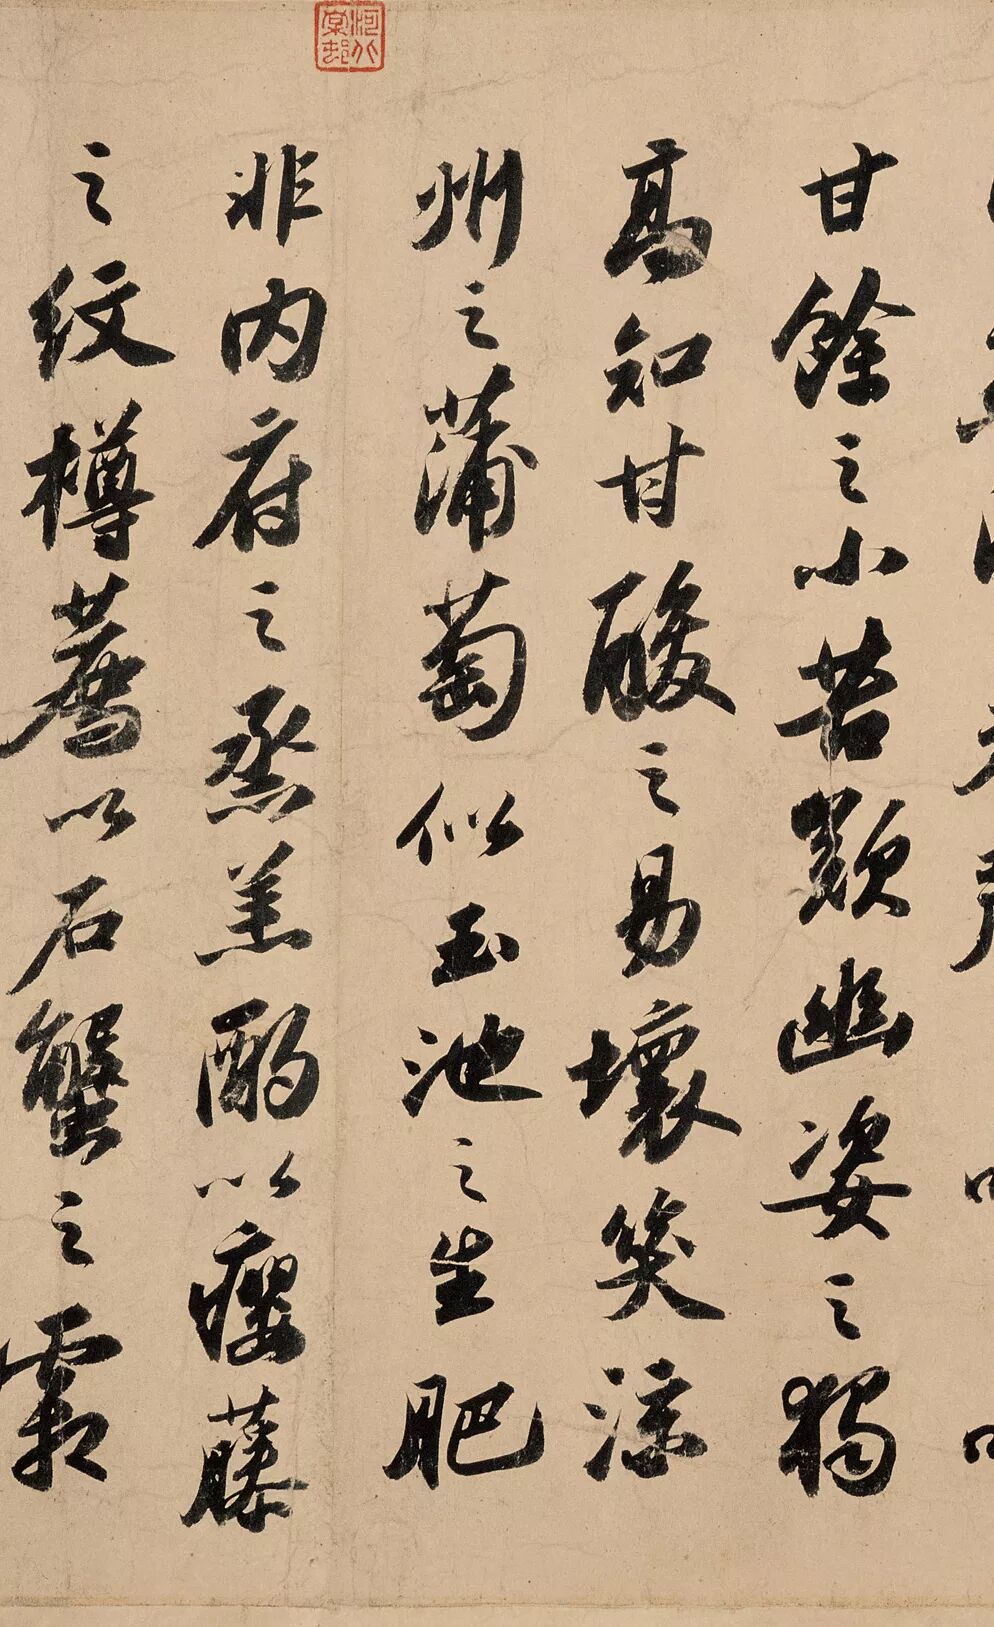 甘餘之小苦歎幽姿之獨
高知甘酸之易壞笑涼
州之蒲萄似玉池之生肥
非內府之烝羔酌以癭藤
之紋樽薦以石蟹之霜
河北棠邨